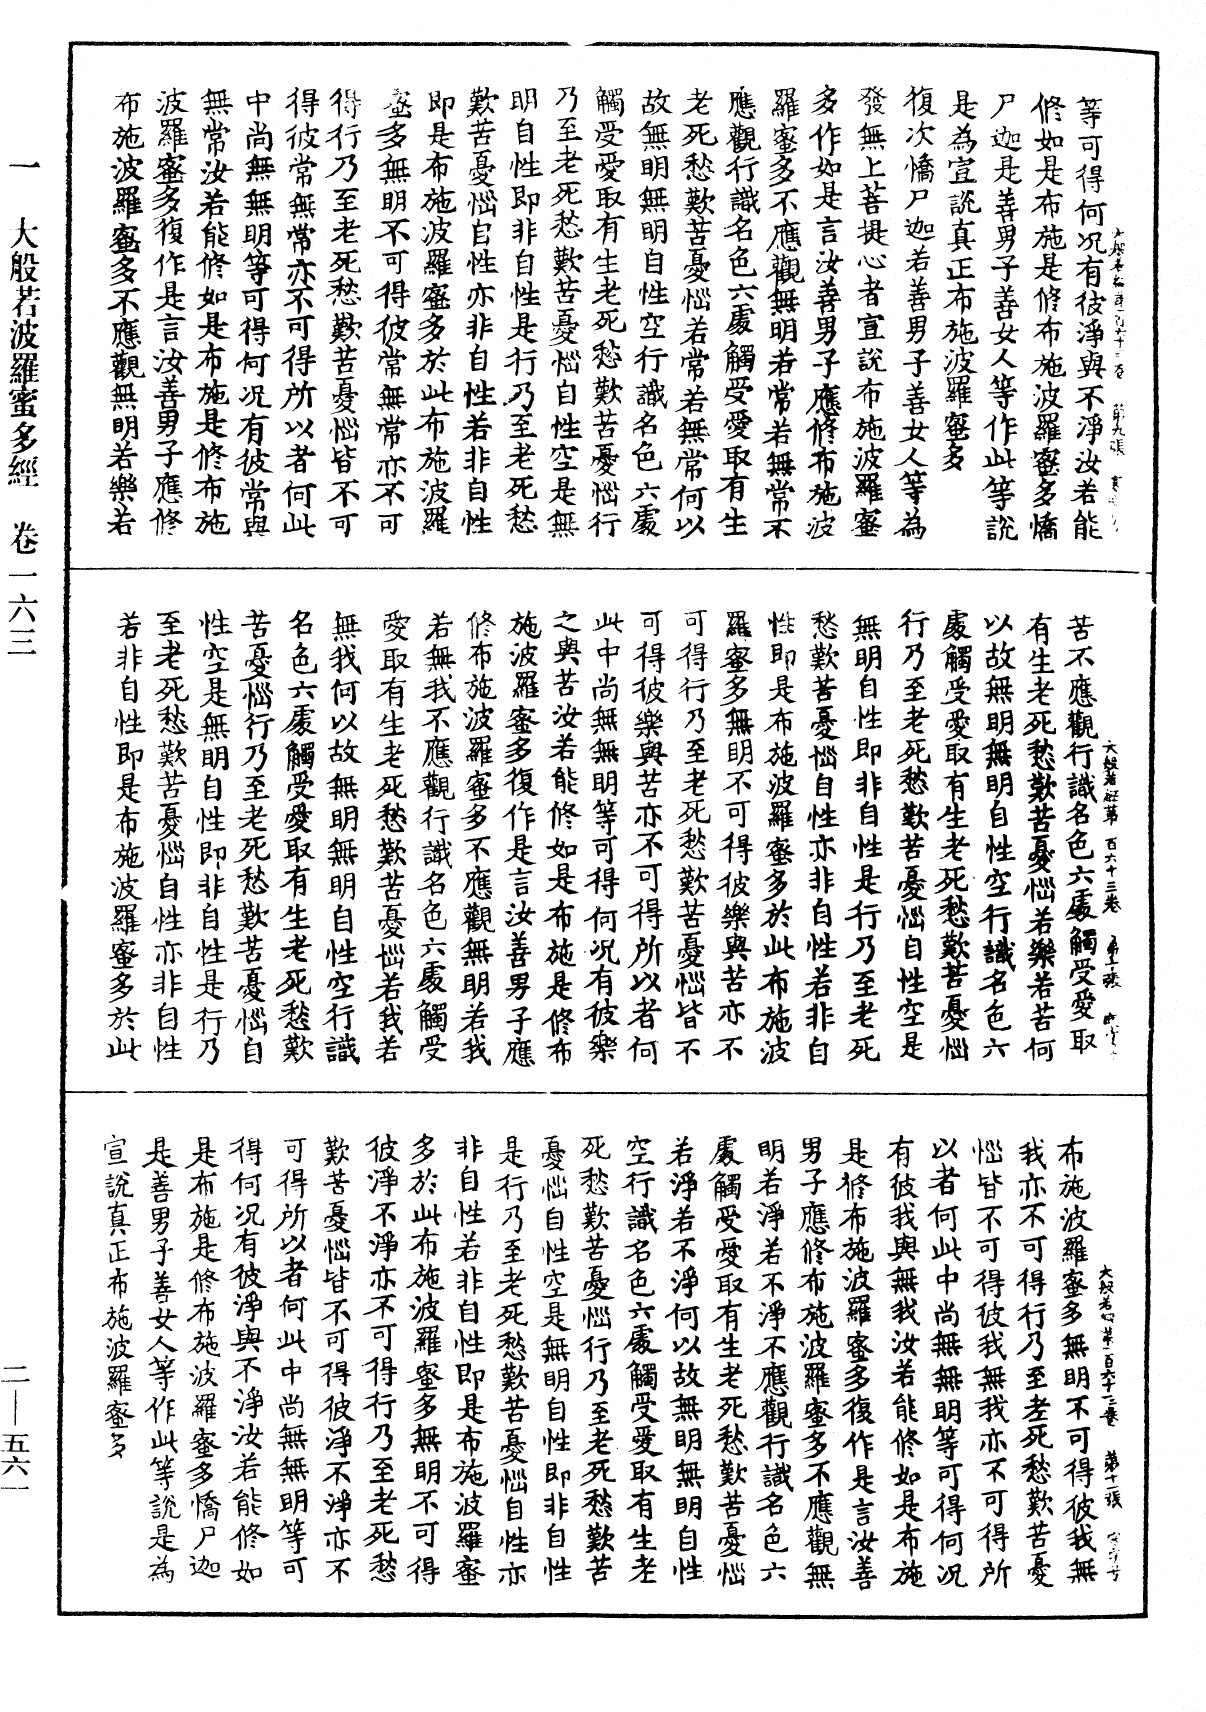 等可得何況有彼淨與不淨汝若能
修如是布施是修布施波羅蜜多憍
尸迦是善男子善女人等作此等說
是為宣說真正布施波羅蜜多
復次憍尸迦若善男子善女人等為
發無上菩提心者宣說布施波羅蜜
多作如是言汝善男子應修布施波
羅蜜多不應觀無明若常若無常不
應觀行識名色六處觸受愛取有生
老死愁歎苦憂惱若常若無常何以
故無明無明自性空行識名色六處
觸受愛取有生老死愁歎苦憂惱行
乃至老死愁歎苦憂惱自性空是無
明自性即非自性是行乃至老死愁
歎苦憂惱自性亦非自性若非自性
即是布施波羅蜜多於此布施波羅
蜜多無明不可得彼常無常亦不可
得行乃至老死愁歎苦憂惱皆不可
得彼常無常亦不可得所以者何此
中尚無無明等可得何況有彼常與
無常汝若能修如是布施是修布施
波羅蜜多復作是言汝善男子應修
布施波羅蜜多不應觀無明若樂若
大般若經第一百六十三卷 第十張
苦不應觀行識名色六處觸受愛取
有生老死愁歎苦憂惱若樂若苦何
以故無明無明自性空行識名色六
處觸受愛取有生老死愁歎苦憂惱
行乃至老死愁歎苦憂惱自性空是
無明自性即非自性是行乃至老死
愁歎苦憂惱自性亦非自性若非自
性即是布施波羅蜜多於此布施波
羅蜜多無明不可得彼樂與苦亦不
可得行乃至老死愁歎苦憂惱皆不
可得彼樂與苦亦不可得所以者何
此中尚無無明等可得何況有彼樂
之與苦汝若能修如是布施是修布
施波羅蜜多復作是言汝善男子應
修布施波羅蜜多不應觀無明若我
若無我不應觀行識名色六處觸受
愛取有生老死愁歎苦憂惱若我若
無我何以故無明無明自性空行識
名色六處觸受愛取有生老死愁歎
苦憂惱行乃至老死愁歎苦憂惱自
性空是無明自性即非自性是行乃
至老死愁歎苦憂惱自性亦非自性
若非自性即是布施波羅蜜多於此
大般若經第一百六十三卷 第十一張
布施波羅蜜多無明不可得彼我無
我亦不可得行乃至老死愁歎苦憂
惱皆不可得彼我無我亦不可得所
以者何此中尚無無明等可得何況
有彼我與無我汝若能修如是布施
是修布施波羅蜜多復作是言汝善
男子應修布施波羅蜜多不應觀無
明若淨若不淨不應觀行識名色六
處觸受愛取有生老死愁歎苦憂惱
若淨若不淨何以故無明無明自性
空行識名色六處觸受愛取有生老
死愁歎苦憂惱行乃至老死愁歎苦
憂惱自性空是無明自性即非自性
是行乃至老死愁歎苦憂惱自性亦
非自性若非自性即是布施波羅蜜
多於此布施波羅蜜多無明不可得
彼淨不淨亦不可得行乃至老死愁
歎苦憂惱皆不可得彼淨不淨亦不
可得所以者何此中尚無無明等可
得何況有彼淨與不淨汝若能修如
是布施是修布施波羅蜜多憍尸迦
是善男子善女人等作此等說是為
宣說真正布施波羅蜜多
一 大般若波羅蜜多經 卷一六三
二—五六一